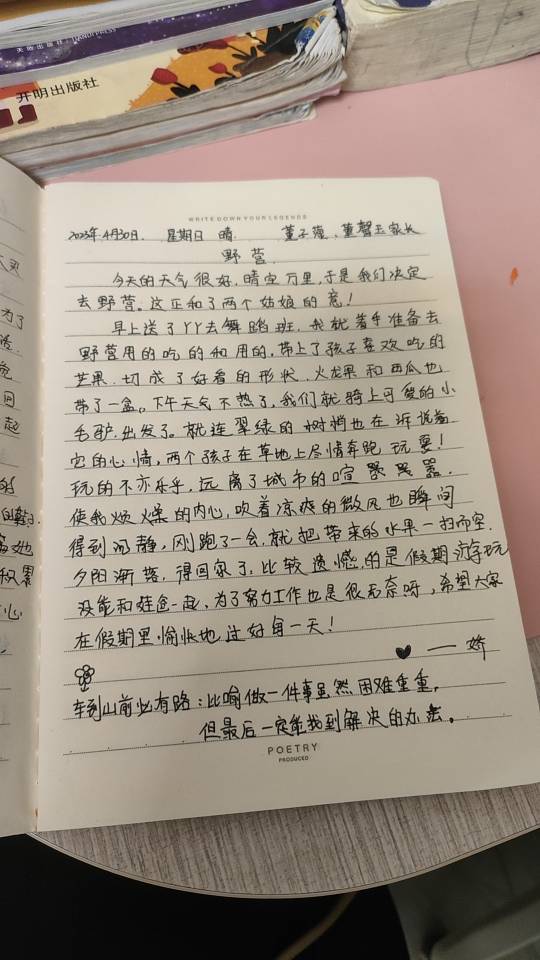 天地出版社 | TIANDI PRESS
开明出版社
WRITE DOWN YOUR LEGENDS
2023年4月30日. 星期日 晴 董子蕴、董馨玉家长
野营.
今天的天气很好,晴空万里,于是我们决定
去野营。这正和了两个姑娘的意!
早上送了YY去舞蹈班,我就着手准备去
野营用的吃的和用的,带上了孩子喜欢吃的
芒果.切成了好看的形状.火龙果和西瓜也
带了一盒。下午天气不热了,我们就骑上可爱的小
毛驴出发了。就连翠绿的树梢也在诉说着
它的心情,两个孩子在草地上尽情奔跑玩耍!
玩的不亦乐乎,远离了城市的喧嚣.
使我烦燥的内心,吹着凉爽的微风也瞬间
得到沉静,刚跑了一会,就把带来的水果一扫而空.
夕阳渐落,得回家了,比较遗憾的是假期游玩
没能和娃爸一起,为了努力工作也是很无奈呀,希望大家
在假期里愉快地过好每一天!
—— 娇
车到山前必有路:比喻做一件事虽然困难重重,
但最后一定能找到解决的办法。
POETRY
PRODUCED